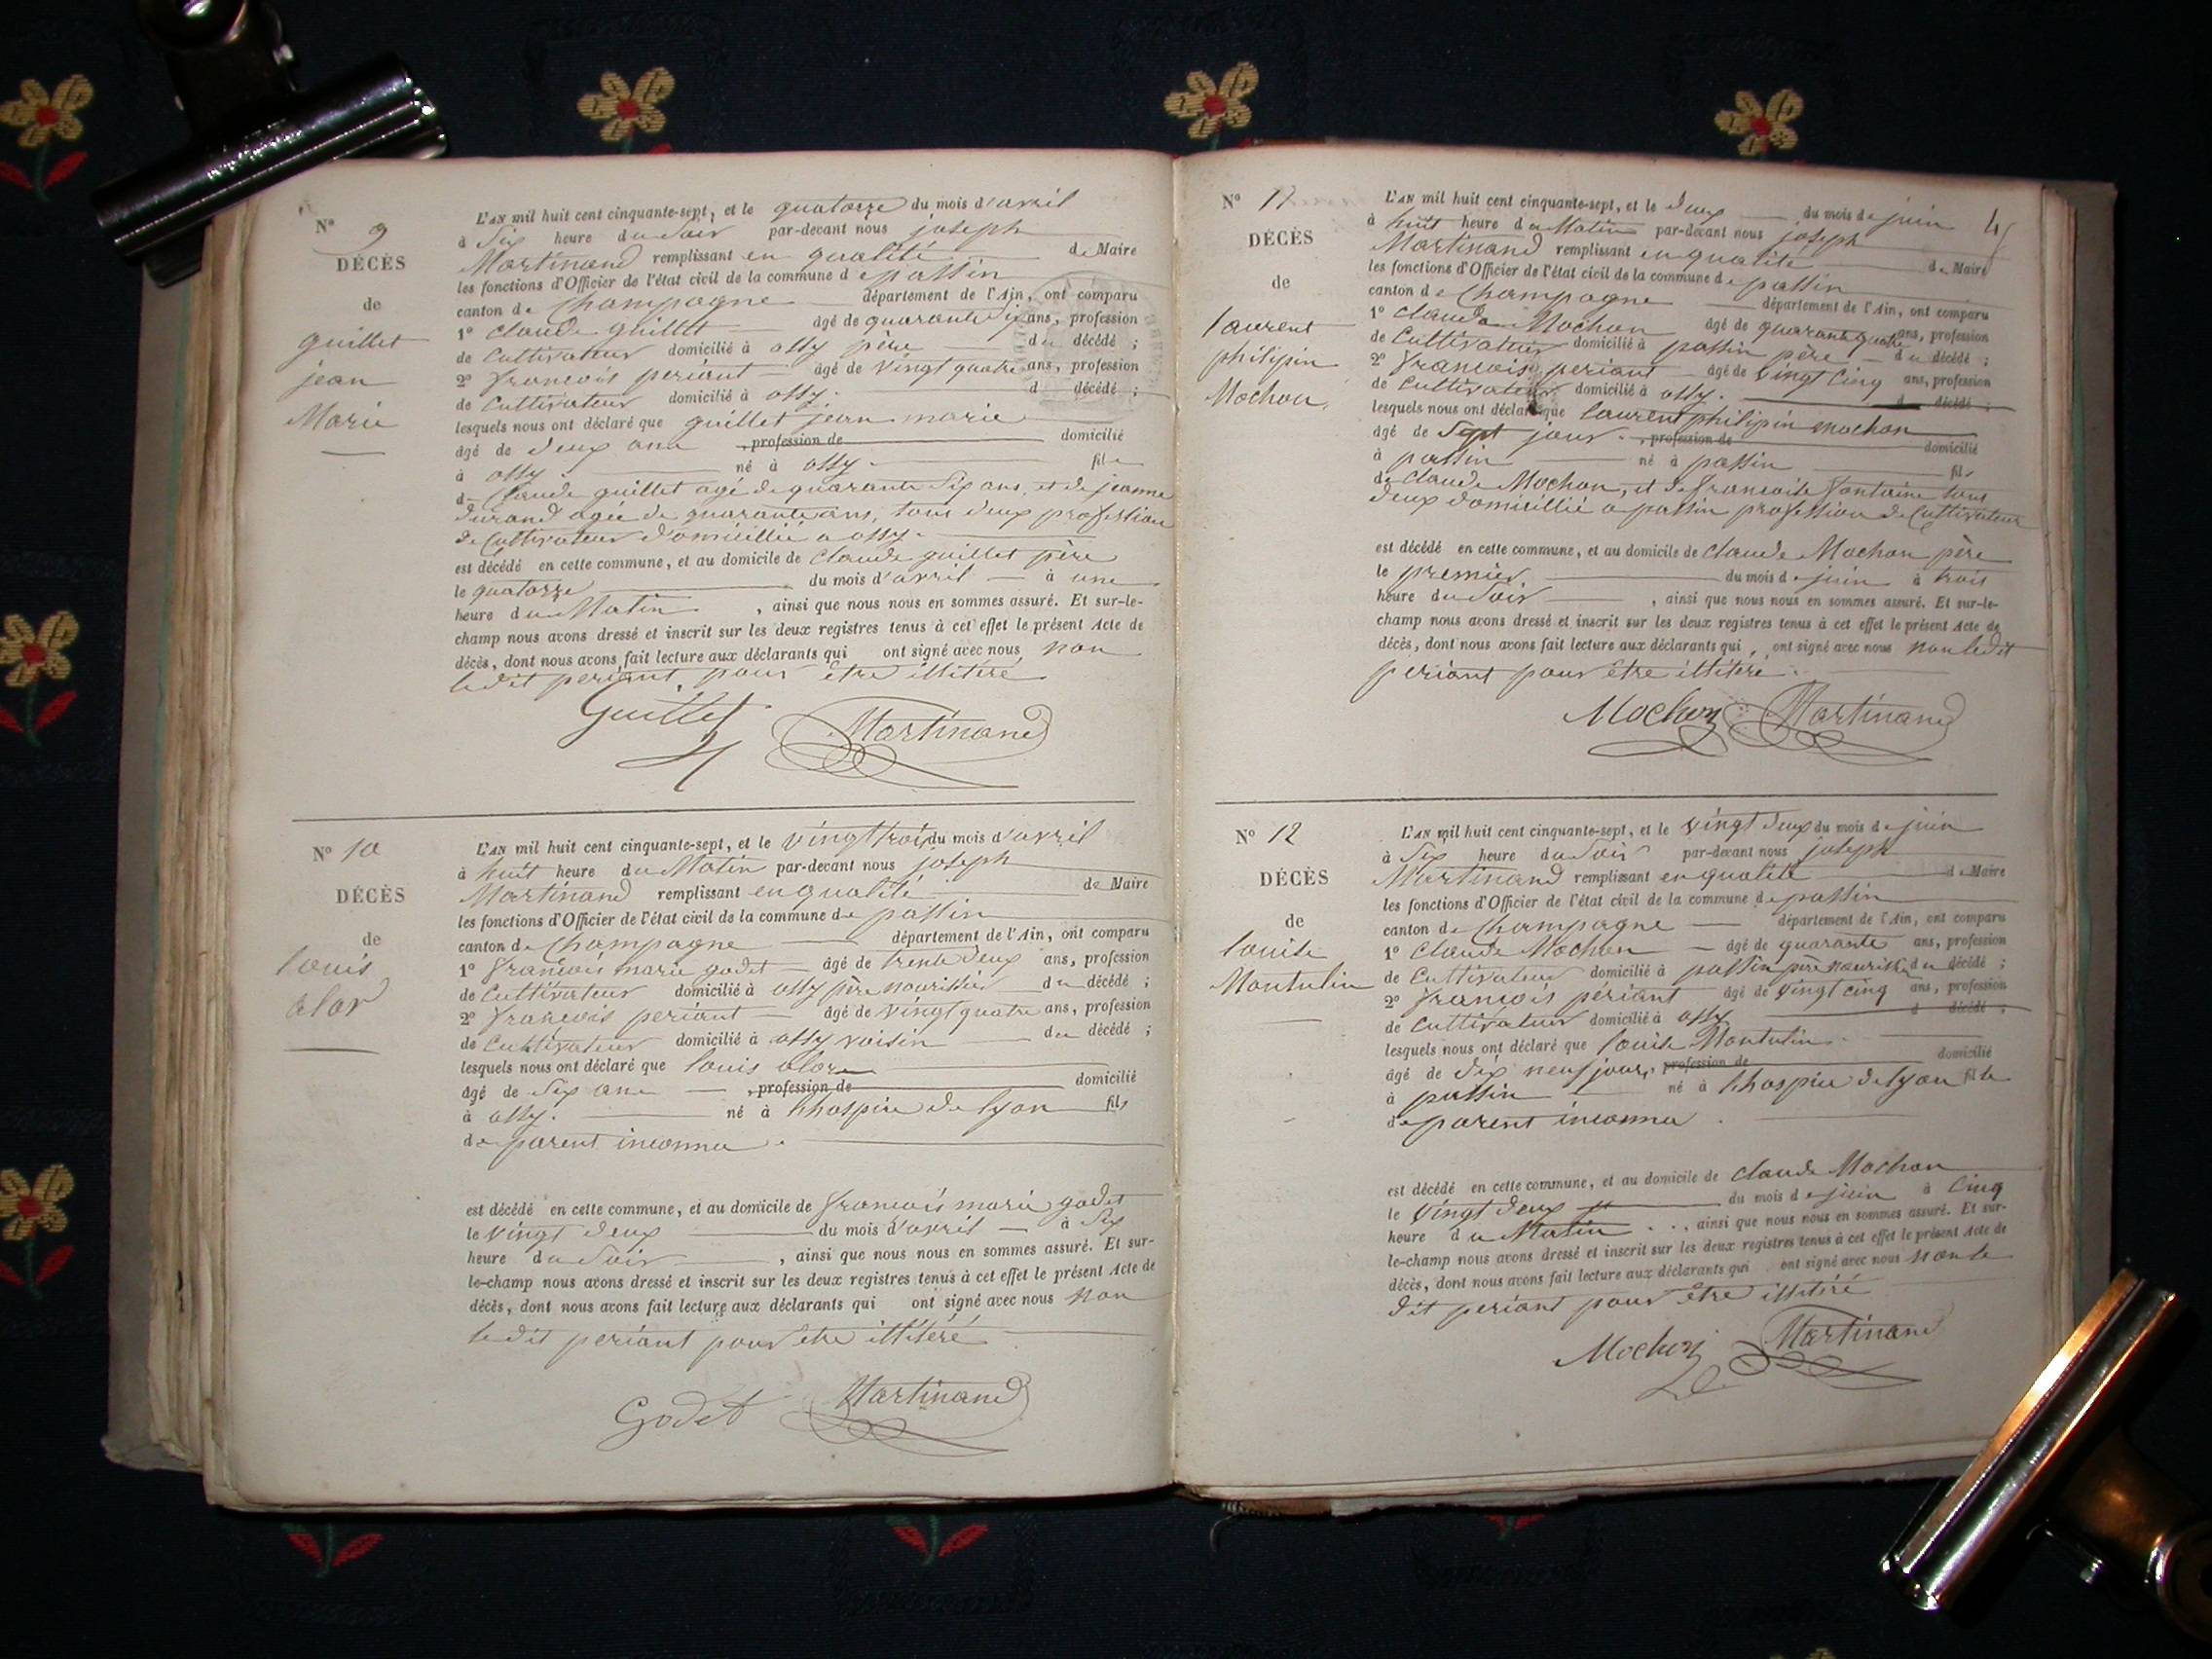 N° 9
DÉCÈS
de
guillet
jean
Marie
L'AN mil huit cent cinquante-sept, et le quatorze du mois d'avril
à Six heure du Soir par-devant nous joseph
Martinand remplissant en qualité de Maire
les fonctions d'Officier de l'état civil de la commune de passin
canton de Champagne département de l'Ain, ont comparu
1° Claude guillet âgé de quarante Six ans, profession
de Cultivateur domicilié à ossy père du décédé ;
2° francois periant âgé de Vingt quatre ans, profession
de Cultivateur domicilié à ossy. d décédé ;
lesquels nous ont déclaré que guillet jean marie
âgé de deux ans , profession de domicilié
à ossy. né à ossy. fils
de Claude guillet agé de quarante Six ans, et de jeanne
durand agée de quarante ans, tous deux profession
de Cultivateur domicillié a ossy.
est décédé en cette commune, et au domicile de Claude guillet père
le quatorze du mois d'avril à une
heure du Matin. , ainsi que nous nous en sommes assuré. Et sur-le-
champ nous avons dressé et inscrit sur les deux registres tenus à cet effet le présent Acte de
décès, dont nous avons fait lecture aux déclarants qui ont signé avec nous non
ledit periant pour être illitéré
Guillet Martinand
N° 10
DÉCÈS
de
louis
alor
L'AN mil huit cent cinquante-sept, et le vingt trois du mois d'avril
à huit heure du Matin par-devant nous joseph
Martinand remplissant en qualité de Maire
les fonctions d'Officier de l'état civil de la commune de passin
canton de Champagne département de l'Ain, ont comparu
1° francois marie godet âgé de trente deux ans, profession
de Cultivateur domicilié à ossy père nourissier du décédé ;
2° francois periant âgé de vingt quatre ans, profession
de Cultivateur domicilié à ossy voisin du décédé ;
lesquels nous ont déclaré que louis alor
âgé de Six ans , profession de domicilié
à ossy. né à lhospice de lyon fils
de parent inconnu.
est décédé en cette commune, et au domicile de francois marie godet
le vingt deux du mois d'avril à Six
heure du Soir , ainsi que nous nous en sommes assuré. Et sur-
le-champ nous avons dressé et inscrit sur les deux registres tenus à cet effet le présent Acte de
décès, dont nous avons fait lecture aux déclarants qui ont signé avec nous non
ledit periant pour etre illitéré
Godet Martinand
N° 11
DÉCÈS
de
laurent
philipin
Mochon.
L'AN mil huit cent cinquante-sept, et le deux du mois de juin
à huit heure du Matin par-devant nous joseph
Martinand remplissant en qualité de Maire
les fonctions d'Officier de l'état civil de la commune de passin
canton de Champagne département de l'Ain, ont comparu
1° Claude Mochon âgé de quarante quatre ans, profession
de Cultivateur domicilié à passin père du décédé ;
2° francois periant âgé de vingt Cinq ans, profession
de Cultivateur domicilié à ossy. d décédé ;
lesquels nous ont déclaré que laurent philipin mochon
âgé de Sept jour. , profession de domicilié
à passin né à passin fils
de Claude Mochon, et de francoise fontaine tous
deux domicillié a passin profession de Cultivateur
est décédé en cette commune, et au domicile de Claude Mochon père
le premier. du mois de juin à trois
heure du Soir , ainsi que nous nous en sommes assuré. Et sur-le-
champ nous avons dressé et inscrit sur les deux registres tenus à cet effet le présent Acte de
décès, dont nous avons fait lecture aux déclarants qui ont signé avec nous non ledit
periant pour être illitéré.
Mochon Martinand
N° 12
DÉCÈS
de
louise
Montulin
L'AN mil huit cent cinquante-sept, et le vingt deux du mois de juin
à Six heure du Soir par-devant nous joseph
Martinand remplissant en qualité de Maire
les fonctions d'Officier de l'état civil de la commune de passin
canton de Champagne département de l'Ain, ont comparu
1° Claude Mochon âgé de quarante ans, profession
de Cultivateur domicilié à passin père nourissier du décédé ;
2° francois périant âgé de vingt cinq ans, profession
de Cultivateur domicilié à ossy d décédé ;
lesquels nous ont déclaré que louise Montulin.
âgé de dix neuf jours, profession de domicilié
à passin né à lhospice de lyon fille
de parent inconnu.
est décédé en cette commune, et au domicile de Claude Mochon
le vingt deux du mois de juin à Cinq
heure du Matin , ainsi que nous nous en sommes assuré. Et sur-
le-champ nous avons dressé et inscrit sur les deux registres tenus à cet effet le présent Acte de
décès, dont nous avons fait lecture aux déclarants qui ont signé avec nous non le
dit periant pour être illitéré
Mochon Martinand